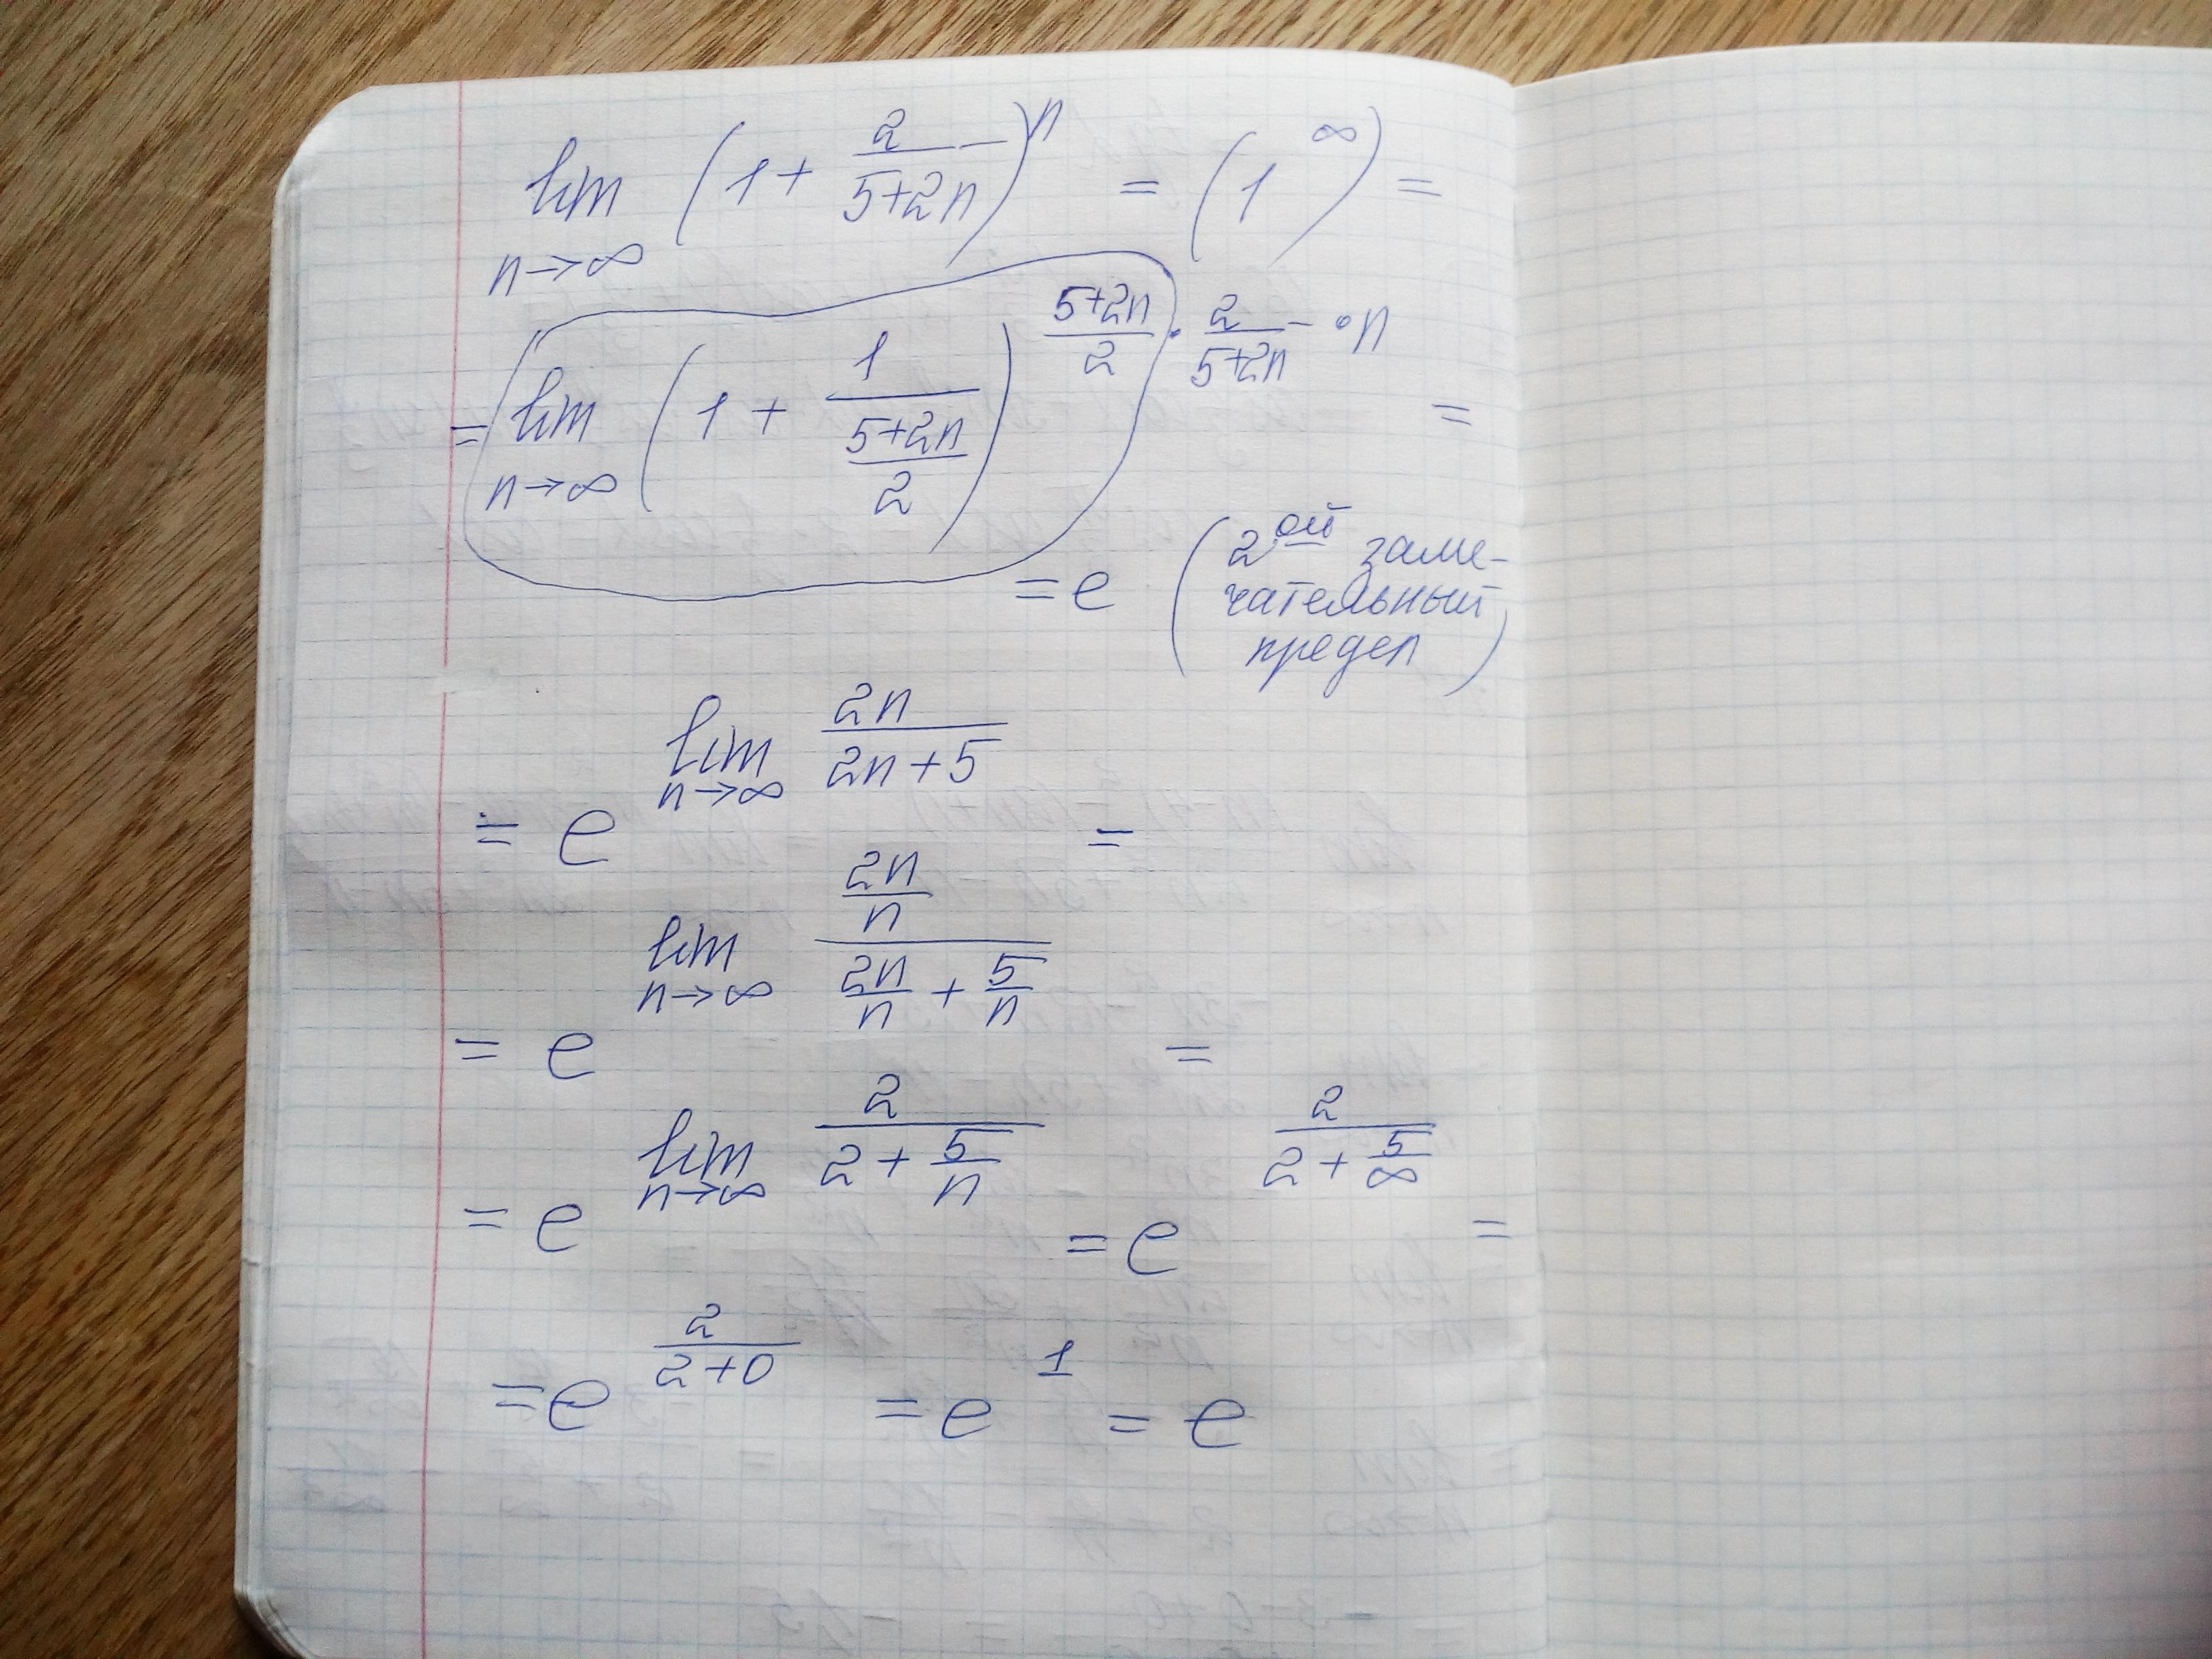 lim n→∞ (1 + 2/(5+2n))^n = (1^∞) =
= lim n→∞ (1 + 1/((5+2n)/2))^((5+2n)/2 · 2/(5+2n) · n) =
= e (2ой заме-
чательный
предел)
= e^(lim n→∞ 2n/(2n+5)) =
= e^(lim n→∞ (2n/n)/(2n/n + 5/n)) =
= e^(lim n→∞ 2/(2 + 5/n)) = e^(2/(2 + 5/∞)) =
= e^(2/(2+0)) = e^1 = e